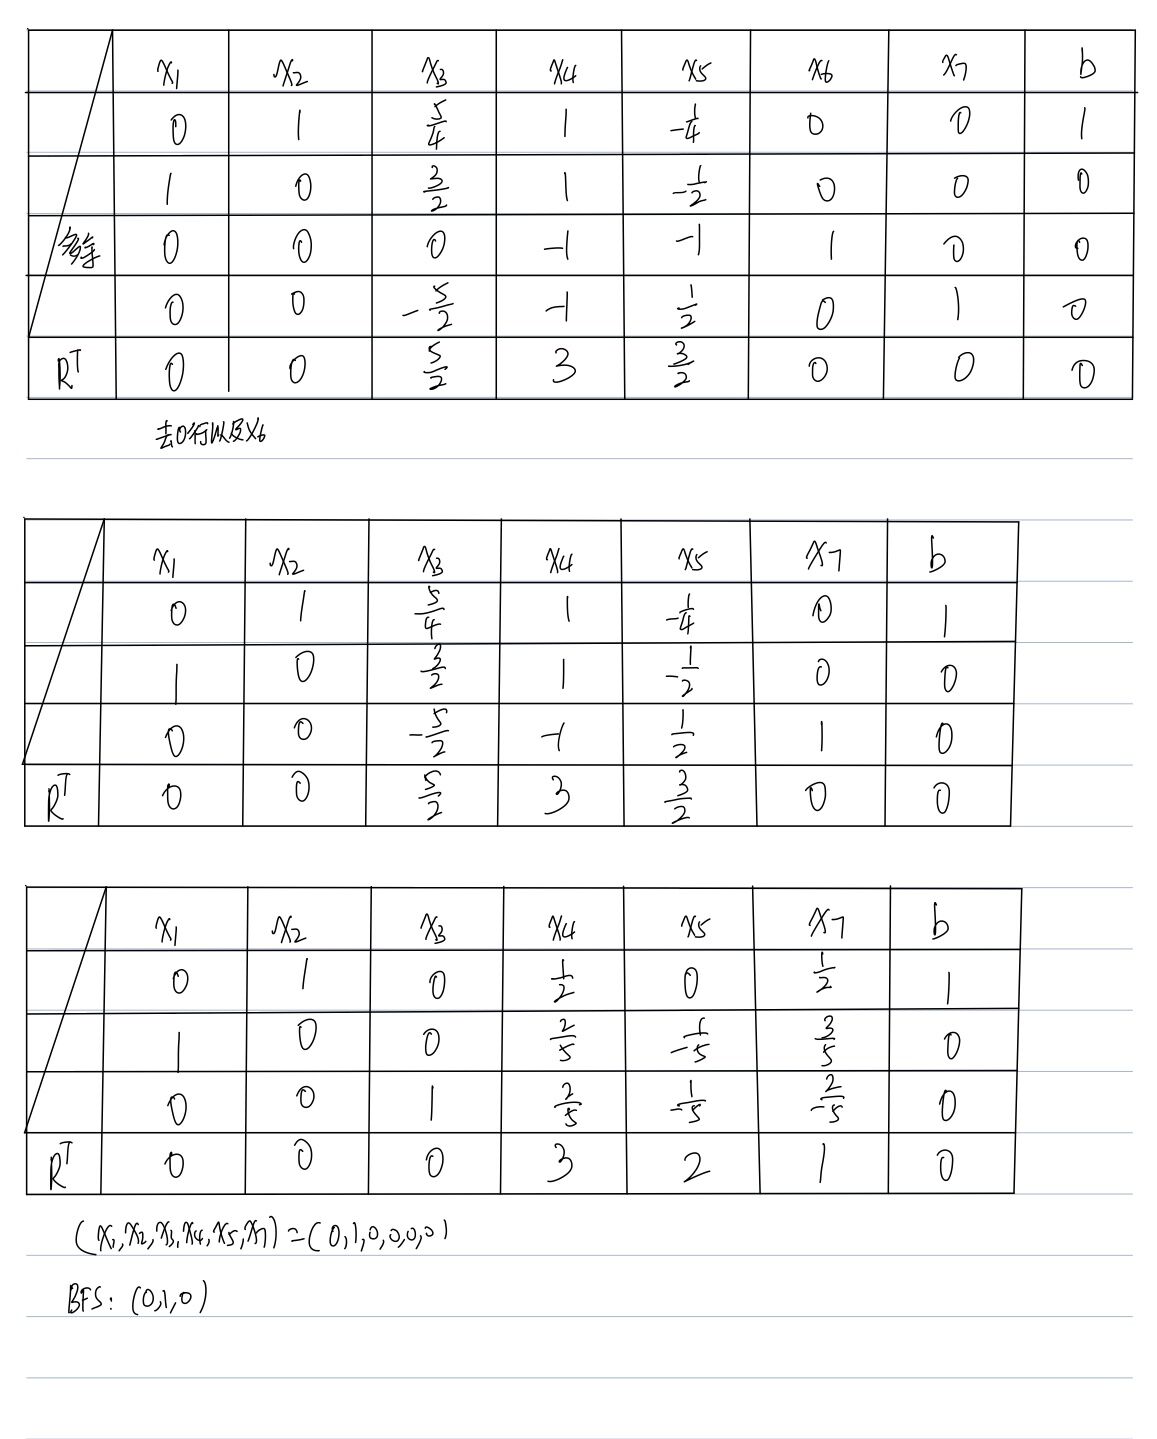 x1 x2 x3 x4 x5 x6 x7 b
0 1 5/4 1 -1/4 0 0 1
1 0 3/2 1 -1/2 0 0 0
多余 0 0 0 -1 -1 1 0 0
0 0 -5/2 -1 1/2 0 1 0
R^T 0 0 5/2 3 3/2 0 0 0
去0行以及x6
x1 x2 x3 x4 x5 x7 b
0 1 5/4 1 -1/4 0 1
1 0 3/2 1 -1/2 0 0
0 0 -5/2 -1 1/2 1 0
R^T 0 0 5/2 3 3/2 0 0
x1 x2 x3 x4 x5 x7 b
0 1 0 1/2 0 1/2 1
1 0 0 2/5 -1/5 3/5 0
0 0 1 2/5 -1/5 -2/5 0
R^T 0 0 0 3 2 1 0
(x1,x2,x3,x4,x5,x7)=(0,1,0,0,0,0)
BFS: (0,1,0)